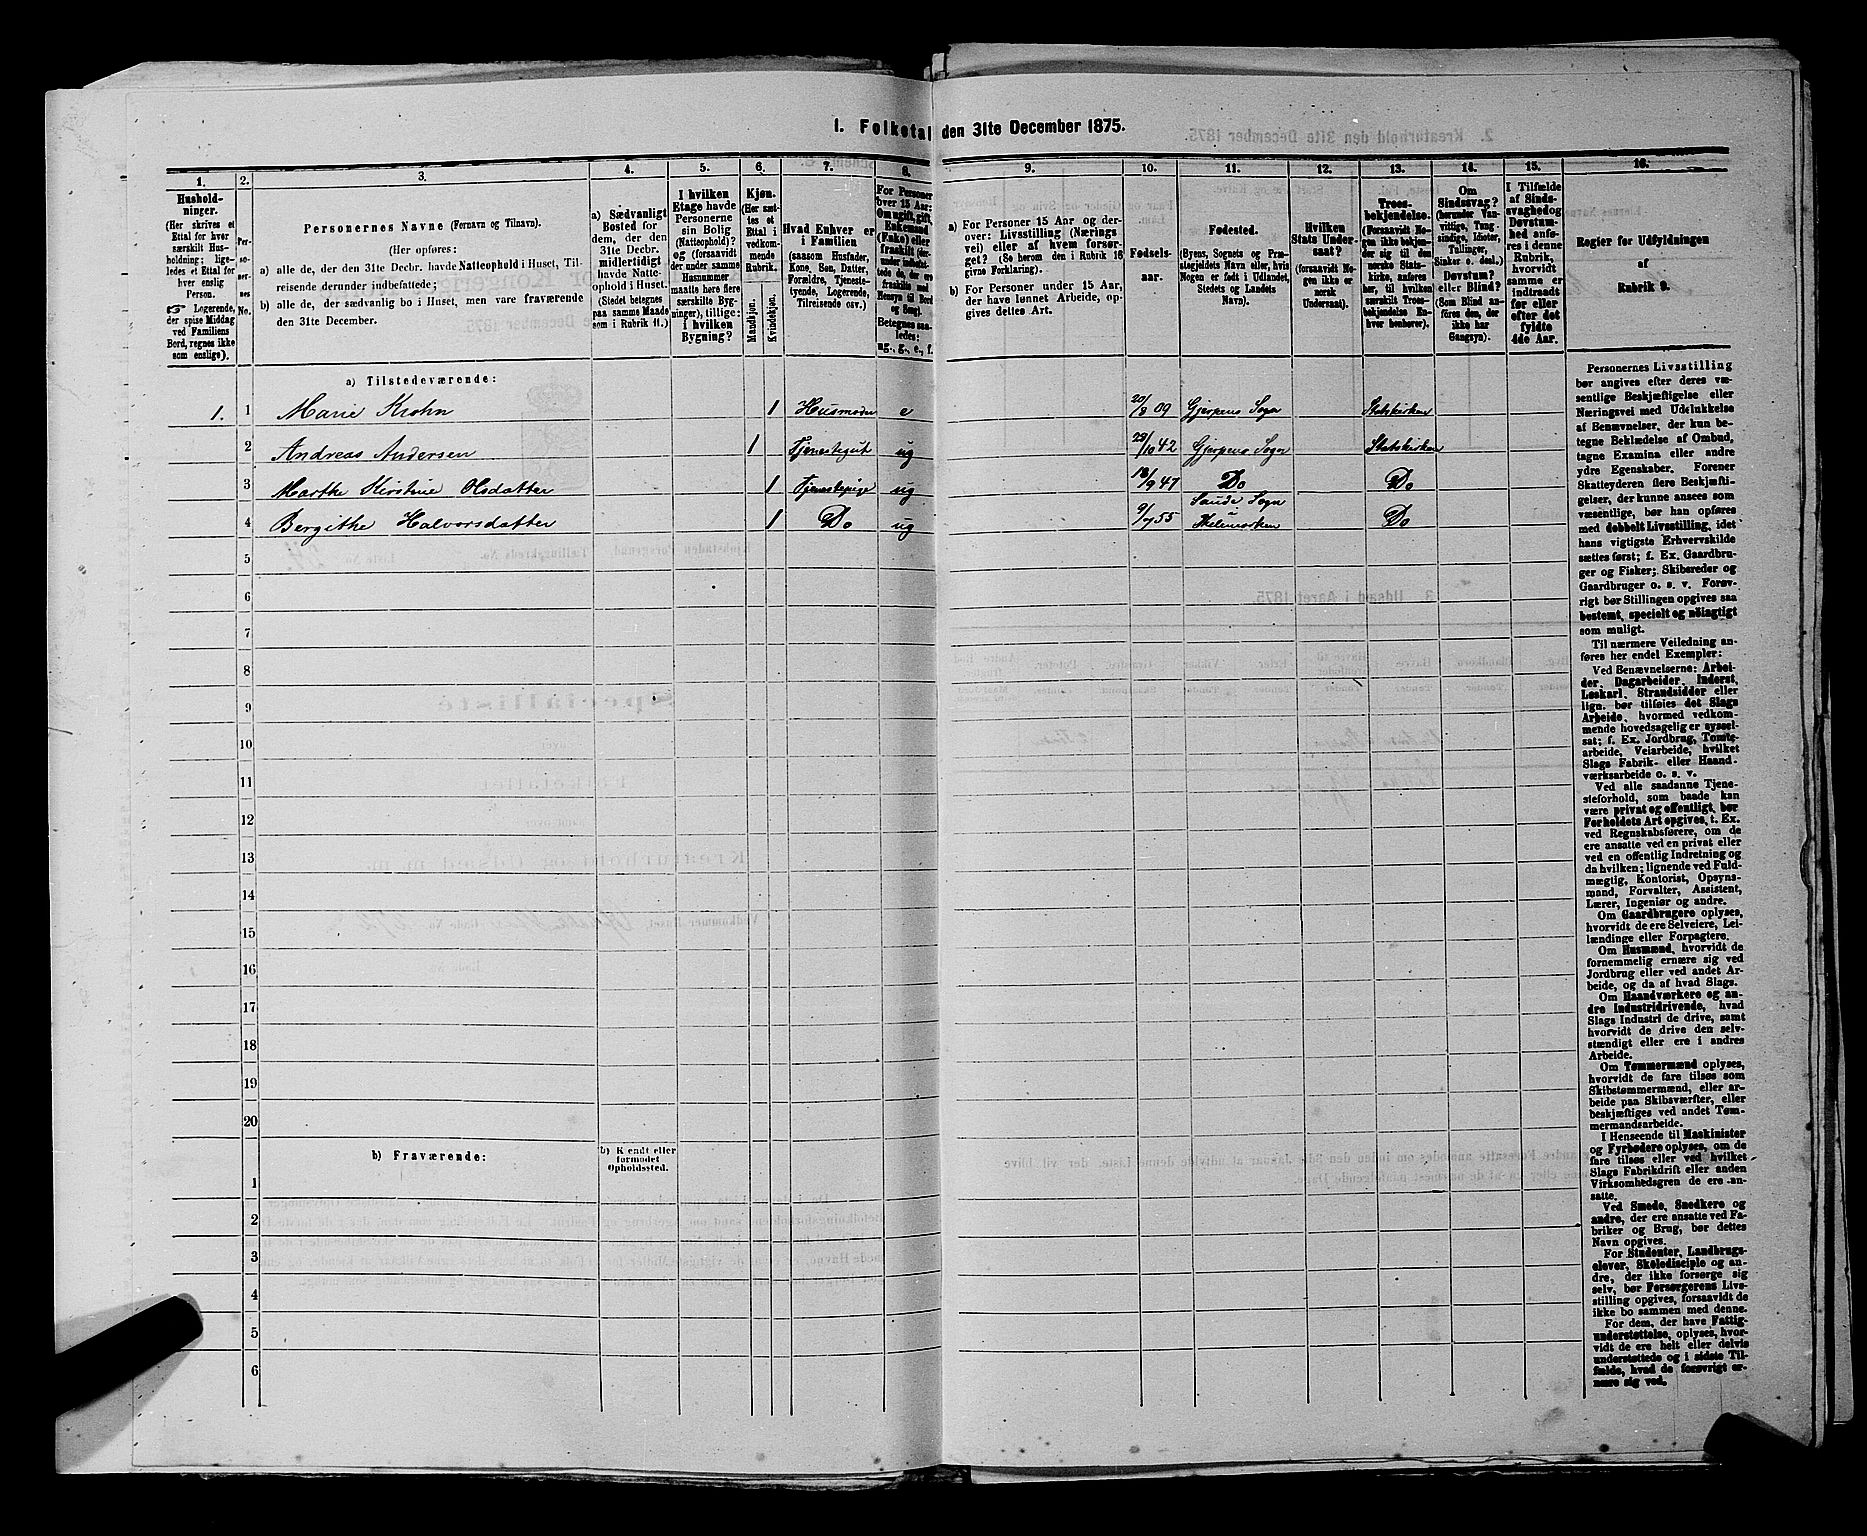 1. Folketal den 31te December 1875.
1.
2.
3.
4.
5.
6.
7.
8.
9.
10.
11.
12.
13.
14.
15.
16.
Hushold-
ninger.
(Her skrives et
Ettal for hver
særskilt Hus-
holdning; lige-
ledes et Ettal for
hver enslig
Person.
☞ Logerende,
der spise Middag
ved Familiens
Bord, regnes ikke
som enslige).
Per-
so-
ner-
nes
No.
Personernes Navne (Fornavn og Tilnavn).
(Her opføres:
a) alle de, der den 31te Decbr. havde Natteophold i Huset, Til-
reisende derunder indbefattede;
b) alle de, der sædvanlig bo i Huset, men vare fraværende
den 31te December.
a) Sædvanligt
Bosted for
dem, der den
31te Decbr.
midlertidigt
havde Natte-
ophold i Huset.
(Stedet betegnes
paa samme Maade
som i Rubrik 11.)
I hvilken
Etage havde
Personerne
sin Bolig
(Natteophold)?
og (forsaavidt
der under samme
Husnummer
maatte høre flere
særskilte Byg-
ninger), tillige:
i hvilken
Bygning?
Kjøn.
(Her sæt-
tes et
Ettal i
vedkom-
mende
Rubrik.
Mandkjøn.
Kvindekjøn.
Hvad Enhver er
i Familien
(saasom Husfader,
Kone, Søn, Datter,
Forældre, Tjeneste-
tyende, Logerende,
Tilreisende osv.)
For Personer
over 15 Aar:
Om ugift, gift,
Enkemand
(Enke) eller
fraskilt
Betegnes saa-
ledes:
ug., g., e., f.
a) For Personer 15 Aar og der-
over: Livsstilling (Nærings
vei) eller af hvem forsør-
get? (Se herom den i Rubrik 16
givne Forklaring).
b) For Personer under 15 Aar,
der have lønnet Arbeide, op-
gives dettes Art.
Fødsels-
aar.
Fødested.
(Byens, Sognets og Præ-
stegjeldets Navn eller, hvis
Nogen er født i Udlandet,
Stedets og Landets
Navn).
Hvilken
Stats Under-
saat?
(forsaavidt No-
gen ikke er
norsk
Undersaat).
Troes-
bekjendelse.
(Forsaavidt No-
gen ikke bekjen-
der sig til den
norske Stats-
kirke, anføres
her, til hvilken
særskilt Troes-
bekjendelse En-
hver henhører).
Om
Sindssvag?
(herunder Van-
vittige, Tung-
sindige, Idioter,
Tullinger,
Sinker o. desl.)
Døvstum?
eller Blind?
(Som Blind an-
føres den, der
ikke har
Gangsyn).
I Tilfælde
af Sinds-
svaghed og
Døvstum-
hed anfø-
res i denne
Rubrik,
hvorvidt
samme er
indtraadt
før eller
efter det
fyldte
4de Aar.
Regler for Udfyldningen
af
Rubrik 9.
a) Tilstedeværende:
1. 1 Marie Krohn 1 Husmoder e 20/8 09 Gjerpens Sogn Statskirken
2 Andreas Andersen 1 Tjenestegut ug 29/10 42 Gjerpens Sogn Statskirken
3 Marthe Kirstine Olsdatter 1 Tjenestepige ug 18/9 47 Do Do
4 Bergithe Halvorsdatter 1 Do ug 9/7 55 Saude Sogn Thelemarken Do
5
6
7
8
9
10
11
12
13
14
15
16
17
18
19
20
b) Fraværende:
b) Kjendt eller
formodet
Opholdssted.
1
2
3
4
5
6
Personernes Livsstilling
bør angives efter deres væ-
sentlige Beskjæftigelse eller
Næringsvei med Udelukkelse
af Benævnelser, der kun be-
tegne Beklædelse af Ombud,
tagne Examina eller andre
ydre Egenskaber. Forener
Skatteyderen flere Beskjæfti-
gelser, der kunne ansees som
væsentlige, bør han opføres
med dobbelt Livsstilling, idet
hans vigtigste Erhvervskilde
sættes først; f. Ex. Gaardbru-
ger og Fisker; Skibsreder og
Gaardbruger o. s. v. Forøv-
rigt bør Stillingen opgives saa
bestemt, specielt og nöiagtigt
som muligt.
Til nærmere Veiledning an-
føres her endel Exempler:
Ved Benævnelserne: Arbei-
der, Dagarbeider, Inderst,
Løskarl, Strandsidder eller
lign. bør tilføies det Slags
Arbeide, hvormed vedkom-
mende hovedsagelig er syssel-
sat; f. Ex. Jordbrug, Tomte-
arbeide, Veiarbeide, hvilket
Slags Fabrik- eller Haand-
værksarbeide o. s. v.
Ved alle saadanne Tjene-
steforhold, som baade kan
være privat og offentligt, bør
Forholdets Art opgives, t. Ex.
ved Regnskabsførere, om de
ere ansatte ved en privat eller
ved en offentlig Indretning og
da hvilken; lignende ved Fuld-
mægtig, Kontorist, Opsyns-
mand, Forvalter, Assistent,
Lærer, Ingeniør og andre.
Om Gaardbrugere oplyses,
hvorvidt de ere Selveiere, Lei-
lændinge eller Forpagtere.
Om Husmænd, hvorvidt de
fornemmelig ernære sig ved
Jordbrug eller ved andet Ar-
beide, og da af hvad Slags.
Om Haandværkere og an-
dre Industridrivende, hvad
Slags Industri de drive, samt
hvorvidt de drive den selv-
stændigt eller ere i andres
Arbeide.
Om Tømmermænd oplyses,
hvorvidt de fare tilsøs som
Skibstømmermænd, eller ar-
beide paa Skibsværfter, eller
beskjæftiges ved andet Tøm-
mermandsarbeide.
I Henseende til Maskinister
og Fyrbødere oplyses, om de
fare tilsøs eller ved hvilket
Slags Fabrikdrift eller anden
Virksomhedsgren de ere an-
satte.
Ved Smede, Snedkere og
andre, der ere ansatte ved Fa-
briker og Brug, bør dettes
Navn opgives.
For Studenter, Landbrugs-
elever, Skoledisciple og an-
dre, der ikke forsørge sig
selv, bør Forsørgerens Livs-
stilling opgives, forsaavidt de
ikke bo sammen med denne.
For dem, der have Fattig-
understøttelse, oplyses, hvor-
vidt de ere helt eller delvis
understøttede og i sidste Til-
fælde, hvad de forøvrigt er-
nære sig ved.